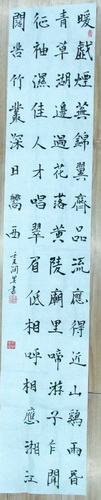 暖戲煙蕪錦翼齊品流應得近山鷄雨昏
青草湖邊過花落黃陵廟里啼游子乍聞
征袖濕佳人才唱翠眉低相呼相應湘江
闊苦竹叢深日嚮西